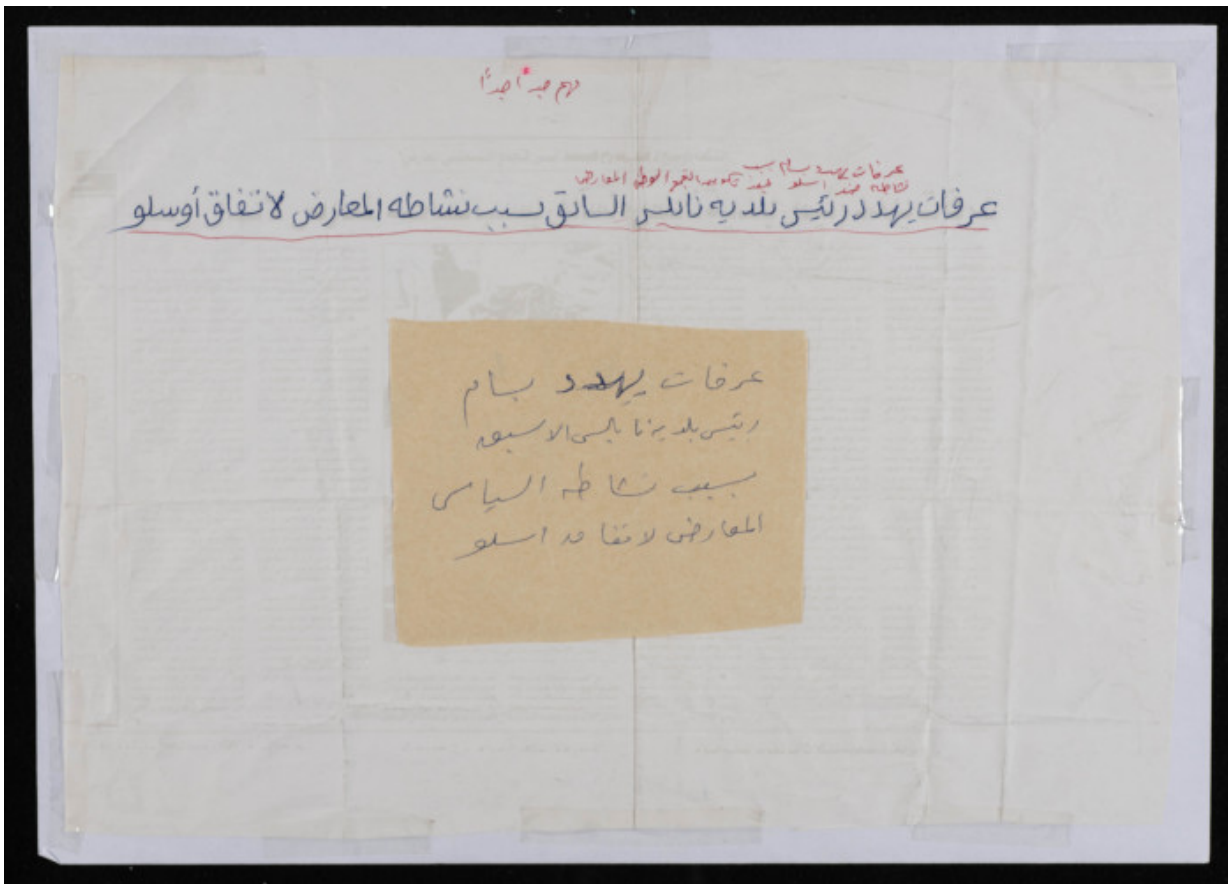 مهم جداً جداً
عرفات يهدد بسام بسبب
نشاطه ضد اسلو
عرفات يهدد رئيس بلدية نابلس السابق بسبب نشاطه المعارض لاتفاق أوسلو
عرفات يهدد بسام
رئيس بلدية نابلس الاسبق
بسبب نشاطه السياسي
المعارض لاتفاق اسلو